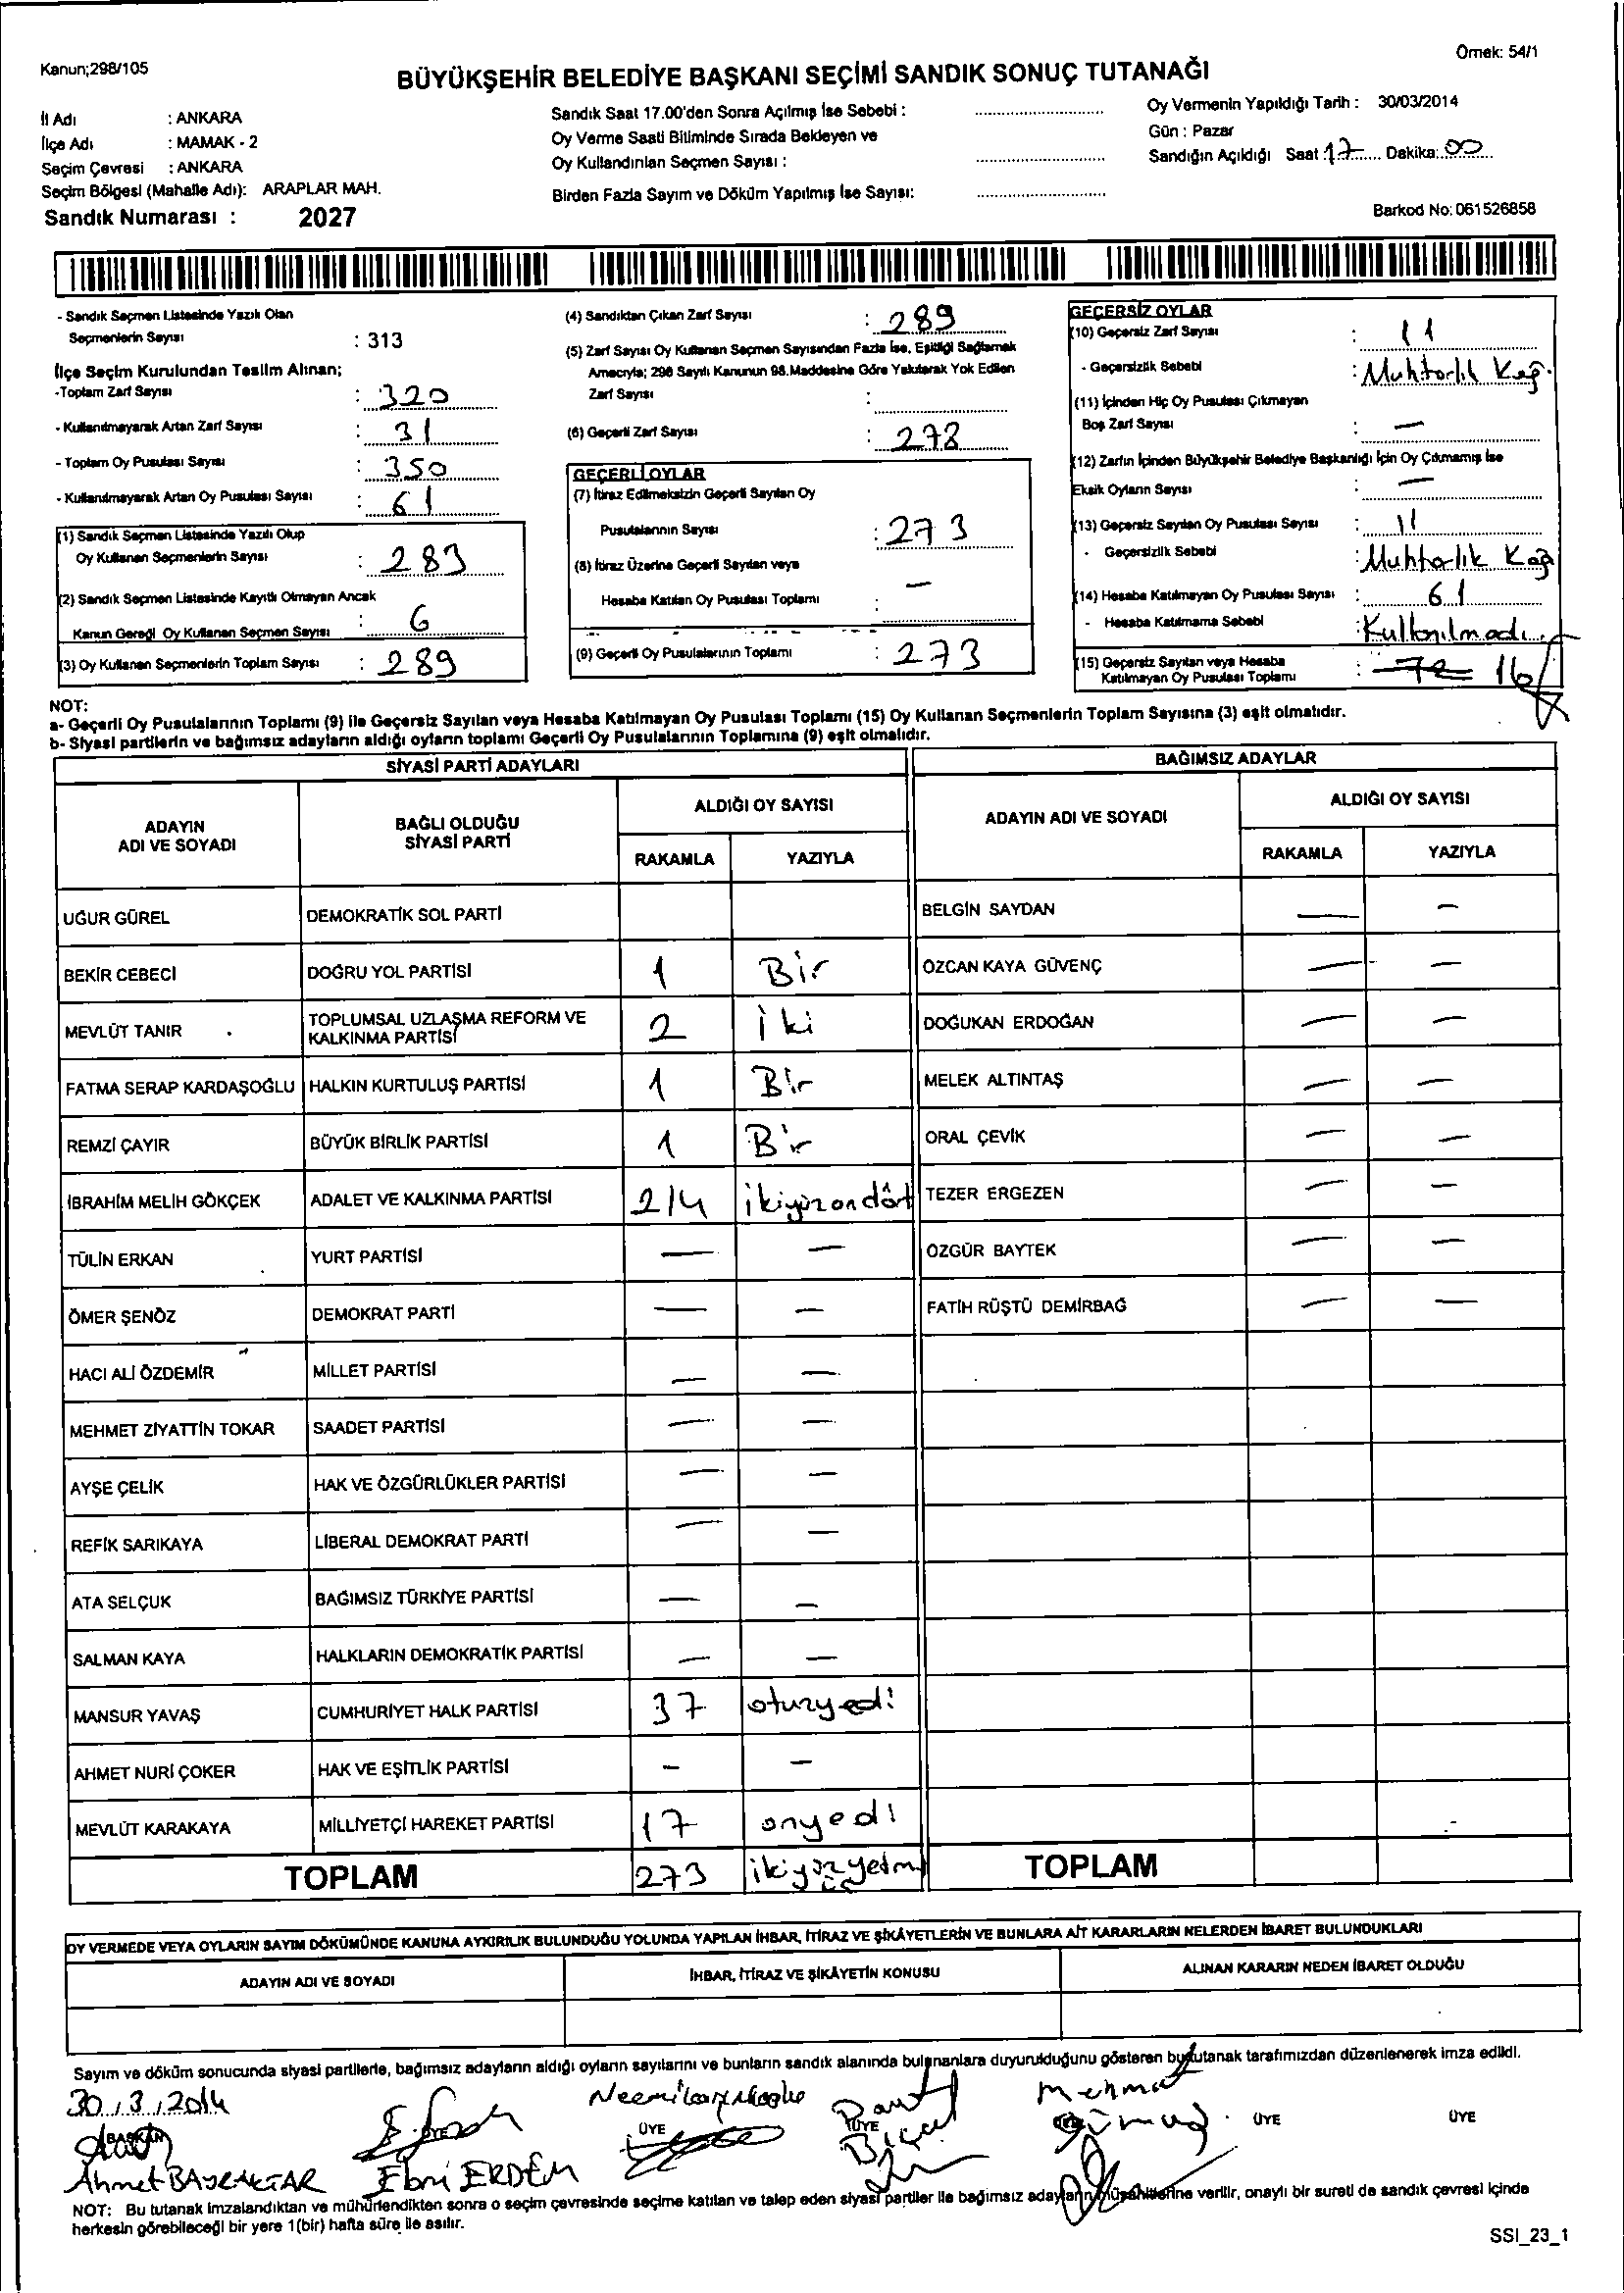 Kanun;298/105
Örnek: 54/1
BÜYÜKŞEHİR BELEDİYE BAŞKANI SEÇİMİ SANDIK SONUÇ TUTANAĞI
İl Adı : ANKARA
İlçe Adı : MAMAK - 2
Seçim Çevresi : ANKARA
Seçim Bölgesi (Mahalle Adı): ARAPLAR MAH.
Sandık Numarası : 2027
Sandık Saat 17.00'den Sonra Açılmış İse Sebebi :
Oy Verme Saati Bitiminde Sırada Bekleyen ve
Oy Kullandırılan Seçmen Sayısı :
Birden Fazla Sayım ve Döküm Yapılmış İse Sayısı:
Oy Vermenin Yapıldığı Tarih : 30/03/2014
Gün : Pazar
Sandığın Açıldığı Saat : 17 Dakika: 00
Barkod No: 061526858
- Sandık Seçmen Listesinde Yazılı Olan
Seçmenlerin Sayısı : 313
İlçe Seçim Kurulundan Teslim Alınan;
-Toplam Zarf Sayısı : 320
- Kullanılmayarak Artan Zarf Sayısı : 31
- Toplam Oy Pusulası Sayısı : 350
- Kullanılmayarak Artan Oy Pusulası Sayısı : 61
(1) Sandık Seçmen Listesinde Yazılı Olup
Oy Kullanan Seçmenlerin Sayısı : 283
(2) Sandık Seçmen Listesinde Kayıtlı Olmayan Ancak
Kanun Gereği Oy Kullanan Seçmen Sayısı : 6
(3) Oy Kullanan Seçmenlerin Toplam Sayısı : 289
(4) Sandıktan Çıkan Zarf Sayısı : 289
(5) Zarf Sayısı Oy Kullanan Seçmen Sayısından Fazla İse, Eşitliği Sağlamak
Amacıyla; 298 Sayılı Kanunun 98.Maddesine Göre Yakılarak Yok Edilen
Zarf Sayısı :
(6) Geçerli Zarf Sayısı : 278
GEÇERLİ OYLAR
(7) İtiraz Edilmeksizin Geçerli Sayılan Oy
Pusulalarının Sayısı : 273
(8) İtiraz Üzerine Geçerli Sayılan veya
Hesaba Katılan Oy Pusulası Toplamı : —
(9) Geçerli Oy Pusulalarının Toplamı : 273
GEÇERSİZ OYLAR
(10) Geçersiz Zarf Sayısı : 11
- Geçersizlik Sebebi : Muhtarlık Kağ.
(11) İçinden Hiç Oy Pusulası Çıkmayan
Boş Zarf Sayısı : —
(12) Zarfın İçinden Büyükşehir Belediye Başkanlığı İçin Oy Çıkmamış İse
Eksik Oyların Sayısı : —
(13) Geçersiz Sayılan Oy Pusulası Sayısı : 11
- Geçersizlik Sebebi : Muhtarlık Kağ
(14) Hesaba Katılmayan Oy Pusulası Sayısı : 61
- Hesaba Katılmama Sebebi : Kullanılmadı.
(15) Geçersiz Sayılan veya Hesaba
Katılmayan Oy Pusulası Toplamı : 72 16
NOT:
a- Geçerli Oy Pusulalarının Toplamı (9) ile Geçersiz Sayılan veya Hesaba Katılmayan Oy Pusulası Toplamı (15) Oy Kullanan Seçmenlerin Toplam Sayısına (3) eşit olmalıdır.
b- Siyasi partilerin ve bağımsız adayların aldığı oyların toplamı Geçerli Oy Pusulalarının Toplamına (9) eşit olmalıdır.
SİYASİ PARTİ ADAYLARI
BAĞIMSIZ ADAYLAR
ADAYIN ADI VE SOYADI
BAĞLI OLDUĞU SİYASİ PARTİ
ALDIĞI OY SAYISI
RAKAMLA YAZIYLA
ADAYIN ADI VE SOYADI
ALDIĞI OY SAYISI
RAKAMLA YAZIYLA
UĞUR GÜREL DEMOKRATİK SOL PARTİ
BELGİN SAYDAN — —
BEKİR CEBECİ DOĞRU YOL PARTİSİ 1 Bir
ÖZCAN KAYA GÜVENÇ — —
MEVLÜT TANIR TOPLUMSAL UZLAŞMA REFORM VE KALKINMA PARTİSİ 2 iki
DOĞUKAN ERDOĞAN — —
FATMA SERAP KARDAŞOĞLU HALKIN KURTULUŞ PARTİSİ 1 Bir
MELEK ALTINTAŞ — —
REMZİ ÇAYIR BÜYÜK BİRLİK PARTİSİ 1 Bir
ORAL ÇEVİK — —
İBRAHİM MELİH GÖKÇEK ADALET VE KALKINMA PARTİSİ 214 ikiyüzondört
TEZER ERGEZEN — —
TÜLİN ERKAN YURT PARTİSİ — —
ÖZGÜR BAYTEK — —
ÖMER ŞENÖZ DEMOKRAT PARTİ — —
FATİH RÜŞTÜ DEMİRBAĞ — —
HACI ALİ ÖZDEMİR MİLLET PARTİSİ — —
MEHMET ZİYATTİN TOKAR SAADET PARTİSİ — —
AYŞE ÇELİK HAK VE ÖZGÜRLÜKLER PARTİSİ — —
REFİK SARIKAYA LİBERAL DEMOKRAT PARTİ — —
ATA SELÇUK BAĞIMSIZ TÜRKİYE PARTİSİ — —
SALMAN KAYA HALKLARIN DEMOKRATİK PARTİSİ — —
MANSUR YAVAŞ CUMHURİYET HALK PARTİSİ 37 otuzyedi
AHMET NURİ ÇOKER HAK VE EŞİTLİK PARTİSİ - —
MEVLÜT KARAKAYA MİLLİYETÇİ HAREKET PARTİSİ 17 onyedi
TOPLAM 273 ikiyüzyetmi üç
TOPLAM
OY VERMEDE VEYA OYLARIN SAYIM DÖKÜMÜNDE KANUNA AYKIRILIK BULUNDUĞU YOLUNDA YAPILAN İHBAR, İTİRAZ VE ŞİKÂYETLERİN VE BUNLARA AİT KARARLARIN NELERDEN İBARET BULUNDUKLARI
ADAYIN ADI VE SOYADI
İHBAR, İTİRAZ VE ŞİKÂYETİN KONUSU
ALINAN KARARIN NEDEN İBARET OLDUĞU
Sayım ve döküm sonucunda siyasi partilerle, bağımsız adayların aldığı oyların sayılarını ve bunların sandık alanında bulunanlara duyurulduğunu gösteren bu tutanak tarafımızdan düzenlenerek imza edildi.
30.3.2014
BAŞKAN ÜYE ÜYE ÜYE ÜYE ÜYE
Ahmet BAYRAKTAR
Ebru ERDEM
Mehmet
NOT: Bu tutanak imzalandıktan ve mühürlendikten sonra o seçim çevresinde seçime katılan ve talep eden siyasi partiler ile bağımsız adayların müşahitlerine verilir, onaylı bir sureti de sandık çevresi içinde
herkesin görebileceği bir yere 1(bir) hafta süre ile asılır.
SSI_23_1